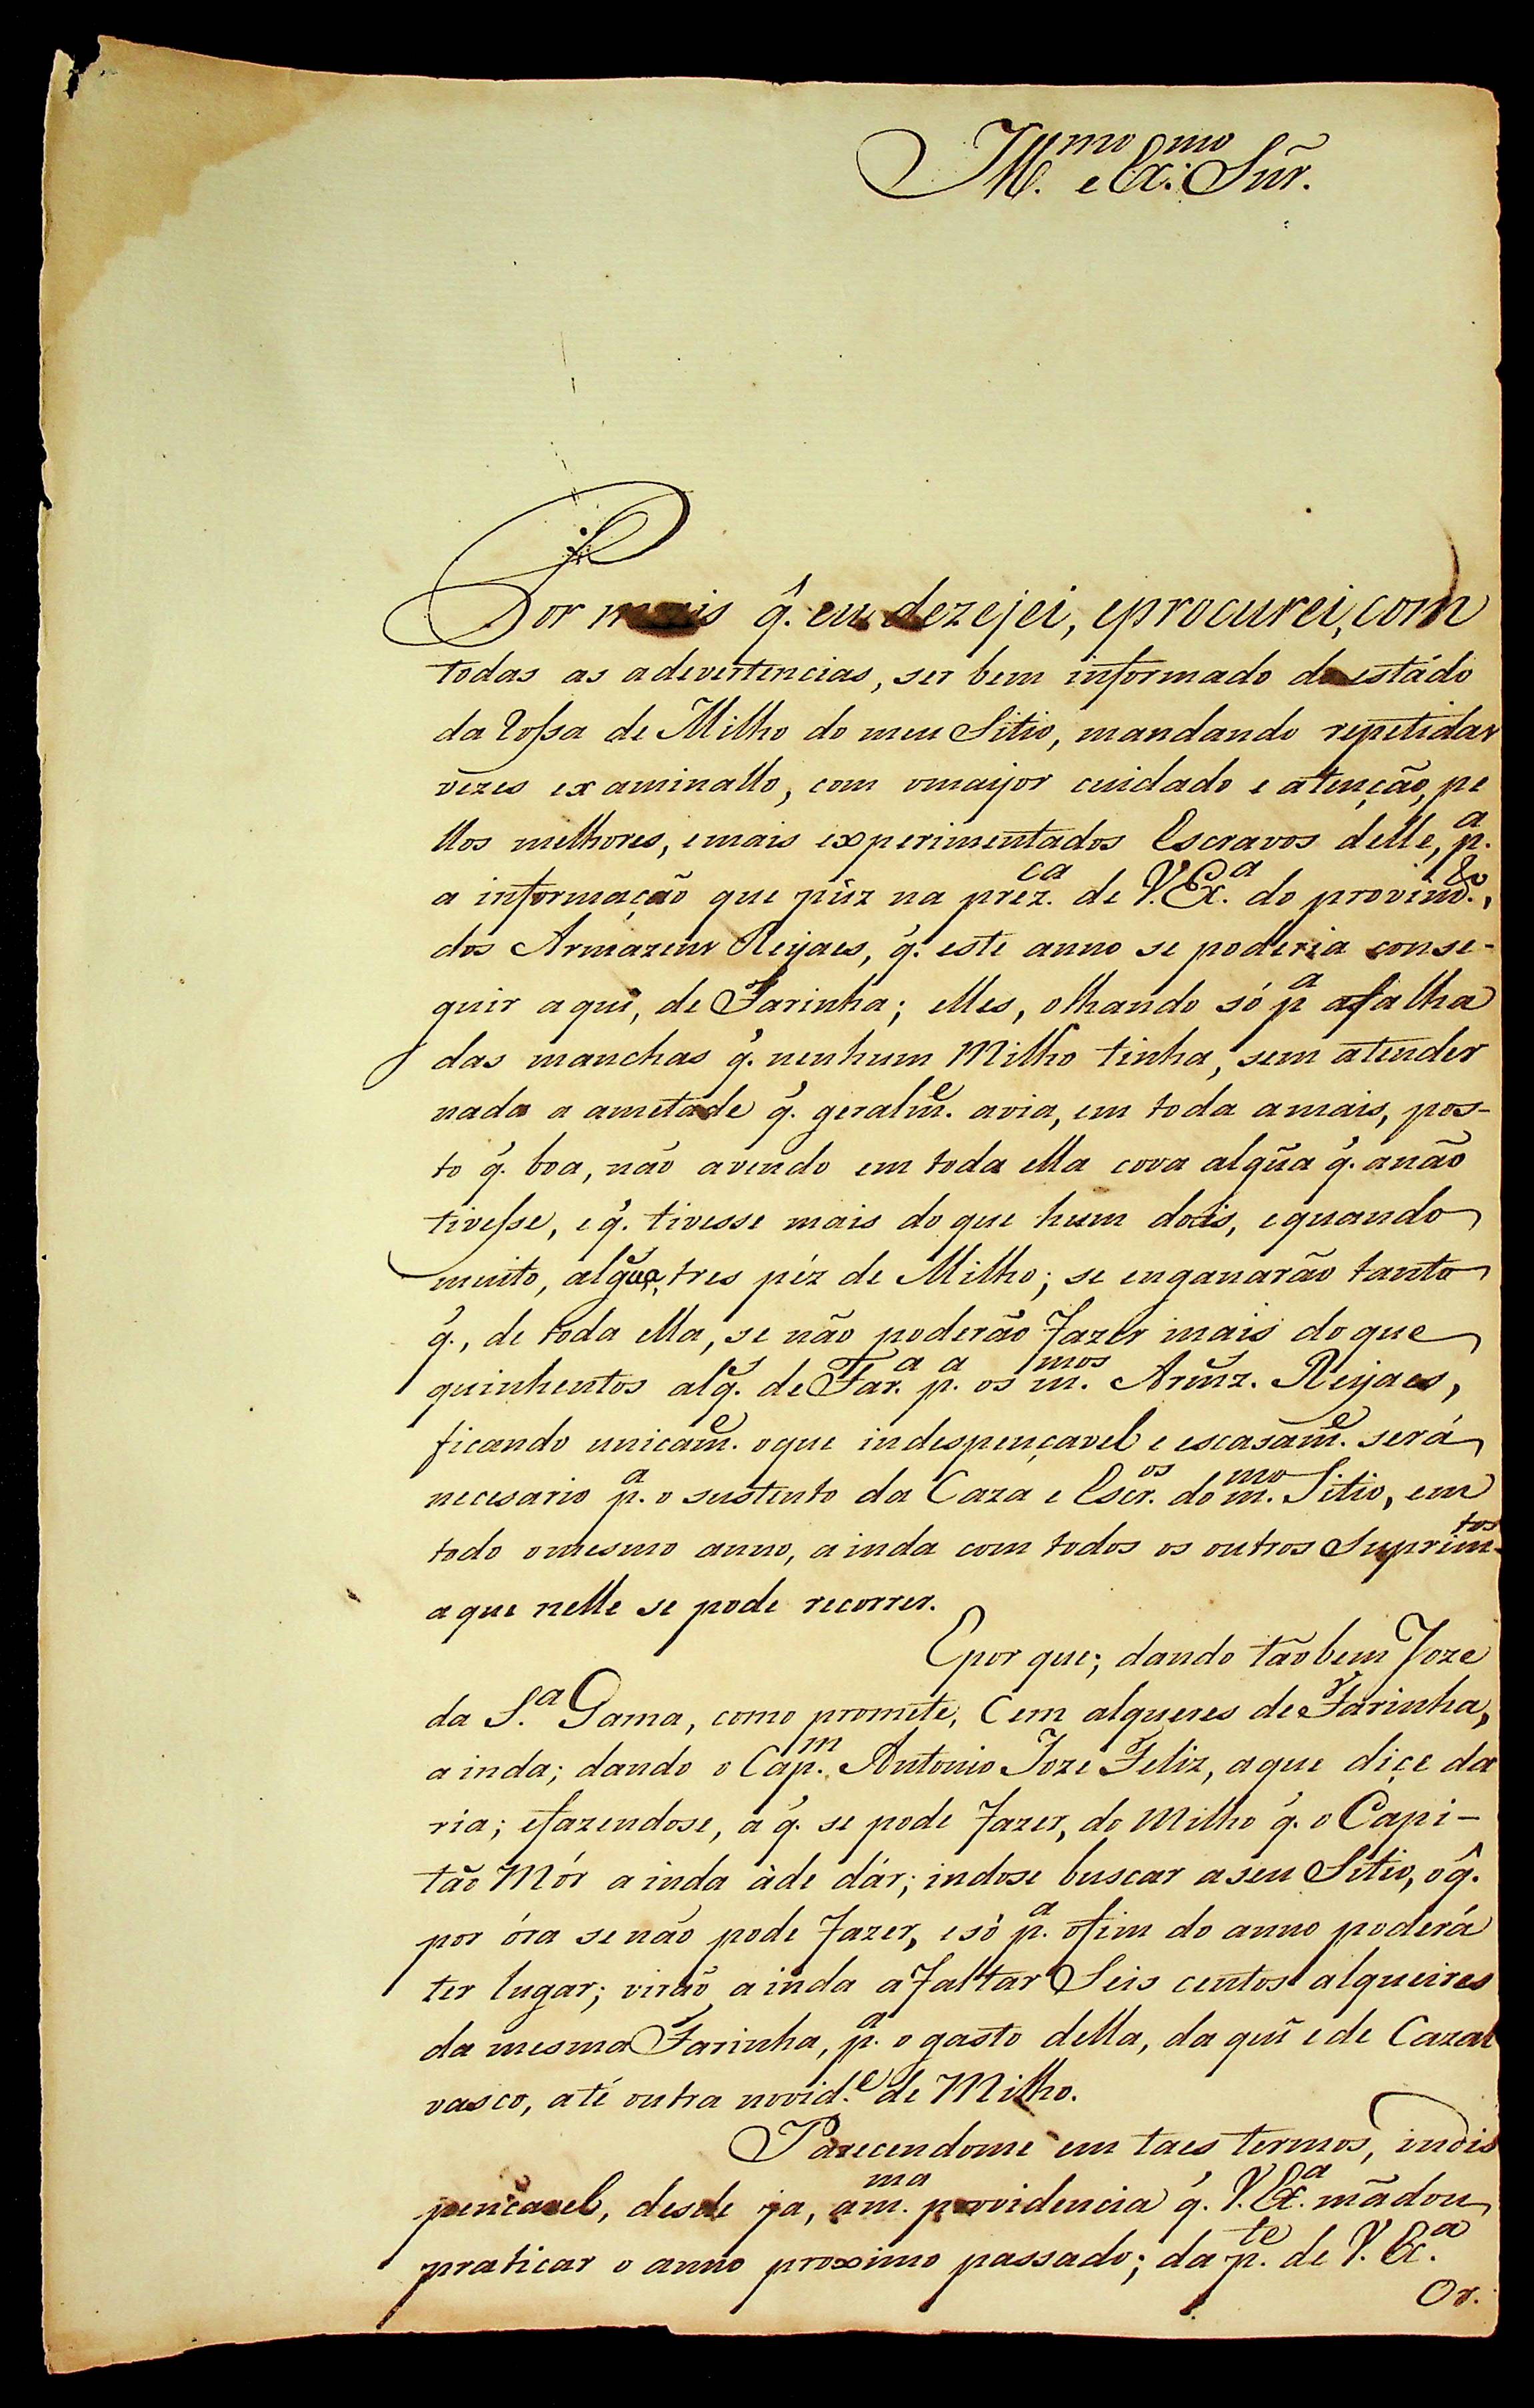 Ill.mo e Ex.mo Sñr.
Por mais q̃. eu dezejei, eprocurei, com
todas as adevertencias, ser bem informado do estádo
da Rossa de Milho do meu Sitio, mandando repetidas
vezes examinallo, com omaijor cuidado e atenção, pe
llos melhores, emais experimentados Escravos delle, p.a
a informação que púz na prez.ca de V. Ex.a do provim.to,
dos Armazens Reijaes, q̃. este anno se poderia conse-
guir aqui, de Farinha; elles, olhando só p.a afalha
das manchas q̃. nenhum Milho tinha, sem atender
nada a ametade q̃. geralm.e avia, em toda amais, pos-
to q̃. boa, não avendo em toda ella cova algũa q̃. anão
tivesse, eq̃. tivesse mais do que hum dois, equando
muito, algũas, tres péz de Milho; se enganarão tanto
q̃., de toda ella, se não poderão fazer mais do que
quinhentos alq.s de Far.a p.a os m.mos Armz.s Reijaes,
ficando unicam.e oque indespençavel e escasam.e será
necesario p.a o sustento da Caza e Escr.os do m.mo Sitio, em
todo omesmo anno, ainda com todos os outros Suprim.tos
aque nelle se pode recorrer.
Epor que; dando tãobem Joze
da S.a Gama, como promete, Cem alqueres de Farinha,
ainda; dando o Cap.m Antonio Joze Feliz, aque diçe da
ria; efazendose, a q̃. se pode fazer, do Milho q̃. o Capi-
tão Mór ainda áde dár; indose buscar aseu Sitio, oq̃.
por óra se não pode fazer, esó p.a ofim do anno poderá
ter lugar; virão ainda afaltar Seis centos alqueires
da mesma Farinha, p.a o gasto della, da qui e de Cazal
vasco, até outra novid.e de Milho.
Parecendome em taes termos, indis
pençavel, desde ja, am.ma providencia q̃. V. Ex.a mãdou
praticar o anno proximo passado; da p.te de V. Ex.a
Or.